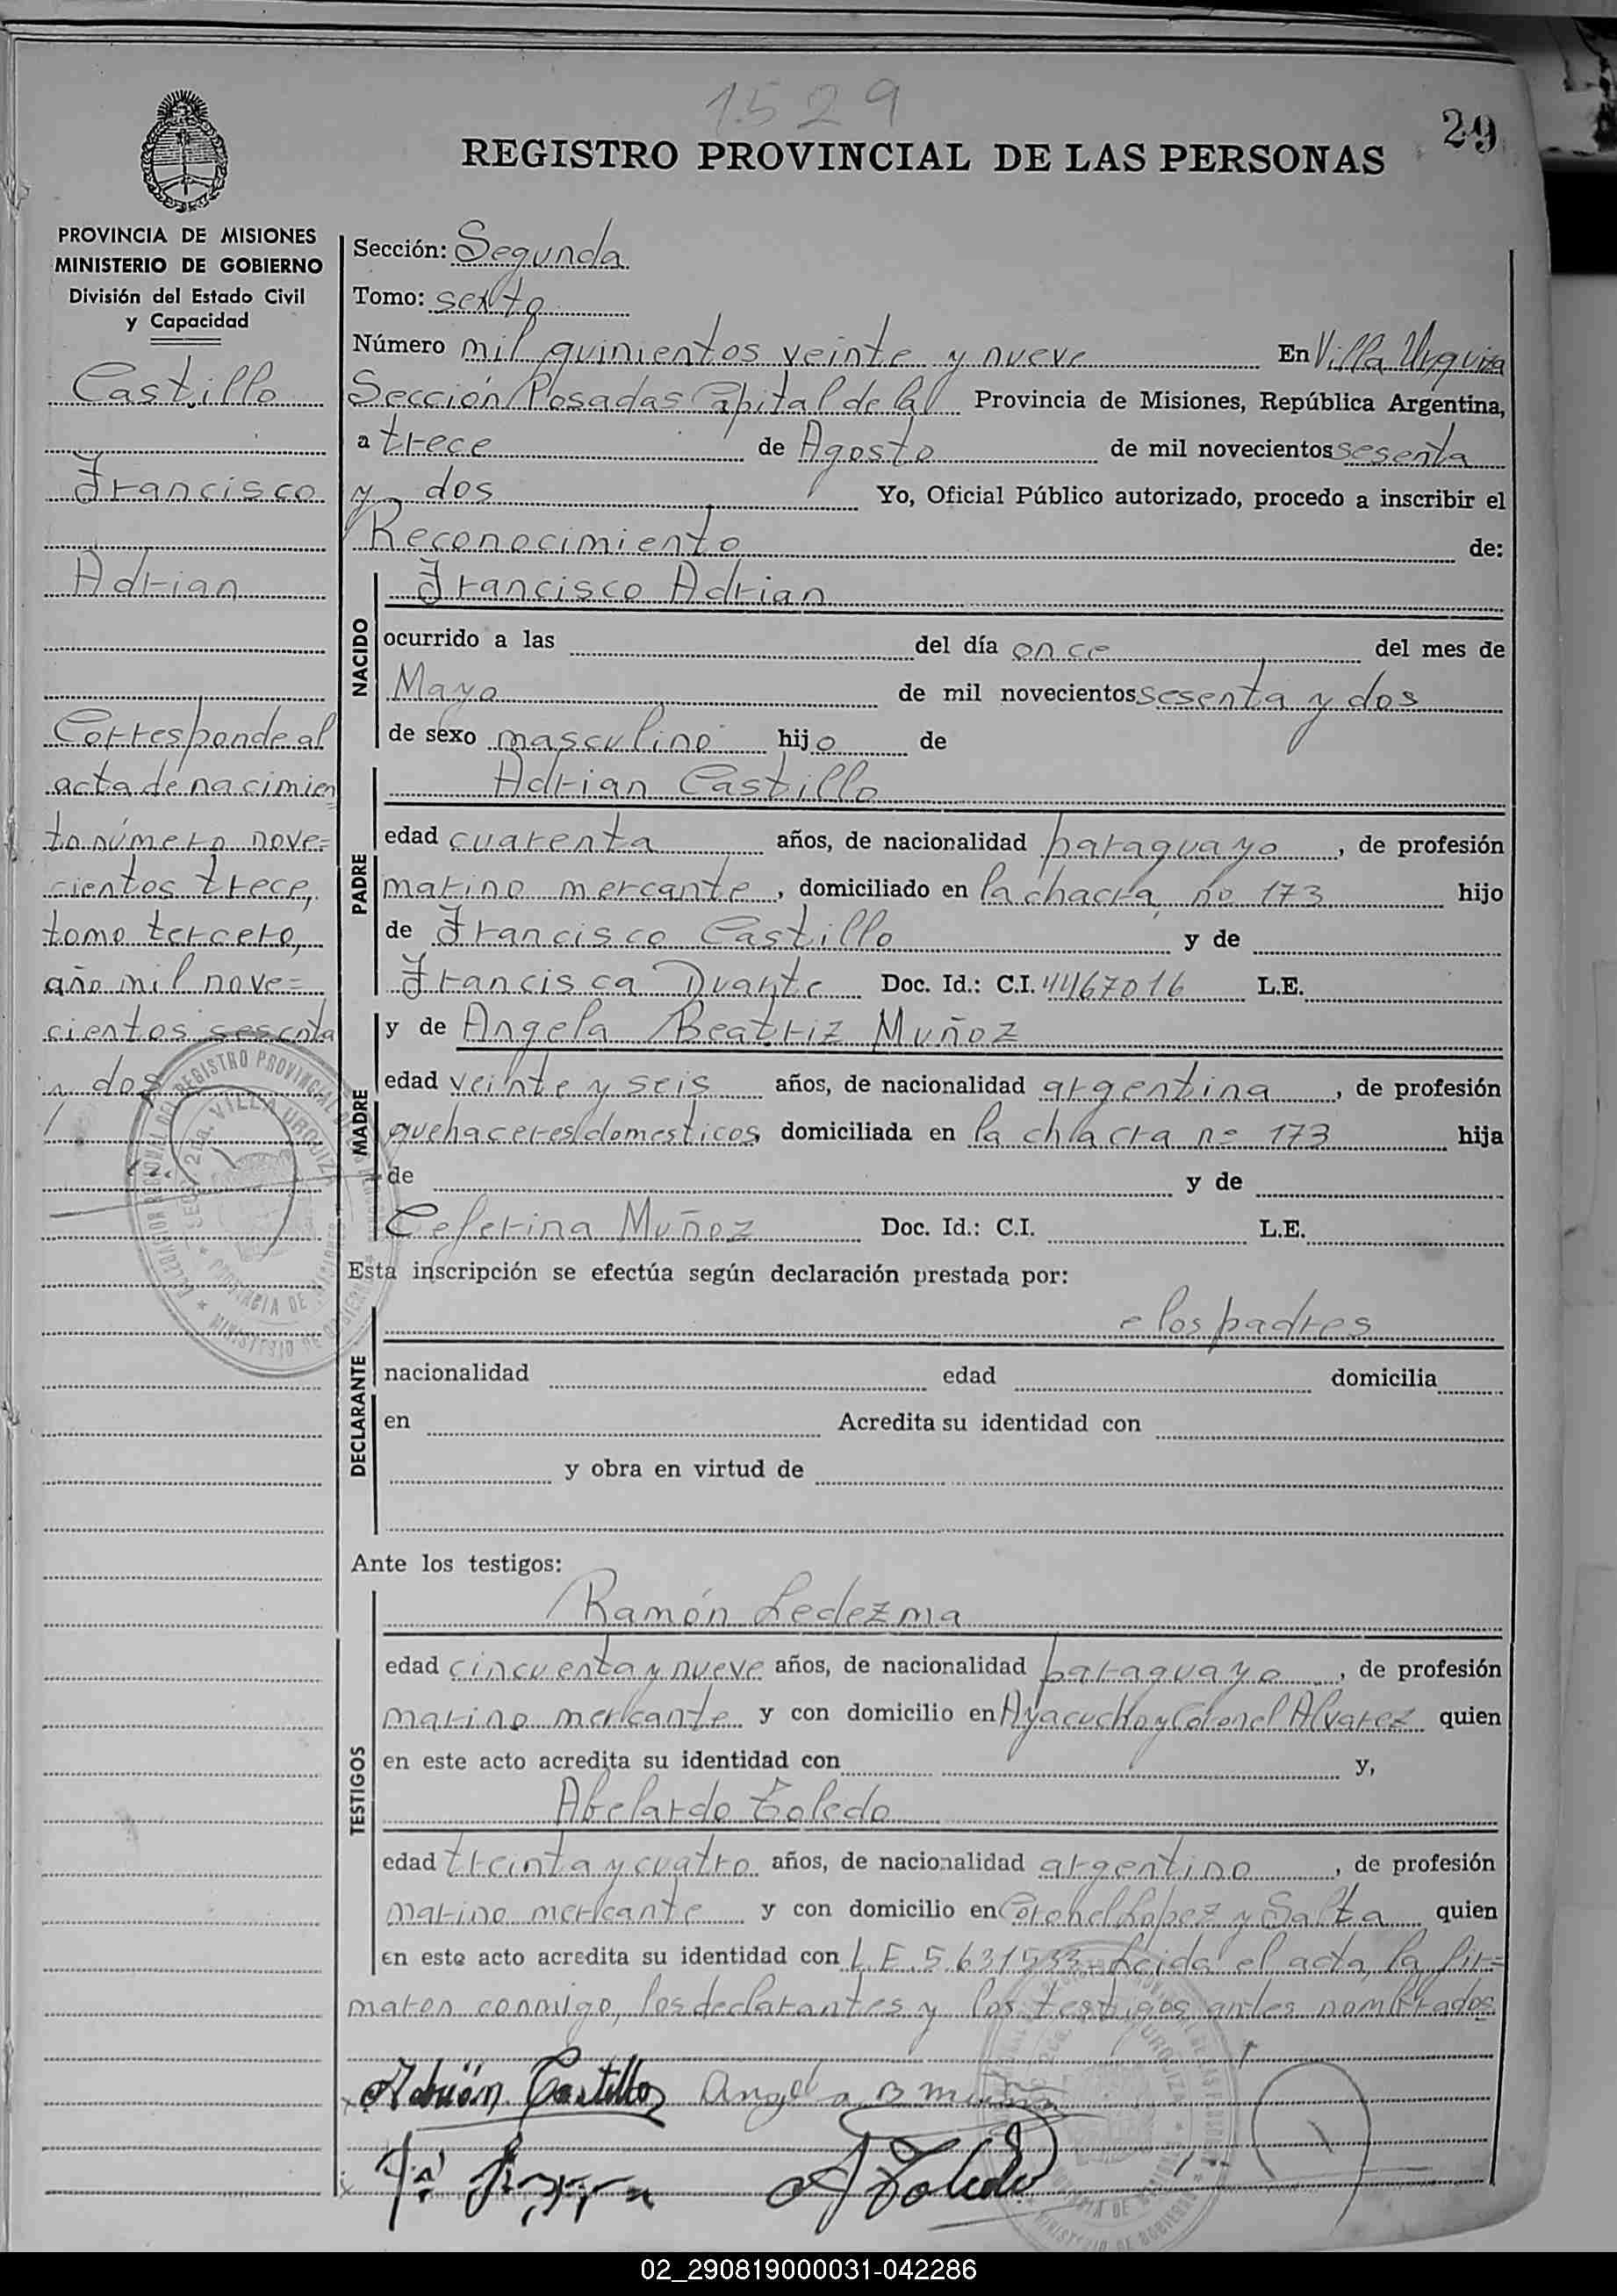 1529
29
REGISTRO PROVINCIAL DE LAS PERSONAS
PROVINCIA DE MISIONES
MINISTERIO DE GOBIERNO
División del Estado Civil
y Capacidad
Castillo
Francisco
Adrian
Corresponde al
acta de nacimien
to número nove=
cientos trece,
tomo tercero,
año mil nove=
cientos sesenta
y dos
Sección: Segunda
Tomo: sexto
Número mil quinientos veinte y nueve En Villa Urquiza
Sección Posadas Capital de la Provincia de Misiones, República Argentina,
a trece de Agosto de mil novecientos sesenta
y dos Yo, Oficial Público autorizado, procedo a inscribir el
Reconocimiento de:
NACIDO
Francisco Adrian
ocurrido a las del día once del mes de
Mayo de mil novecientos sesenta y dos
de sexo masculino hijo de
PADRE
Adrian Castillo
edad cuarenta años, de nacionalidad paraguayo, de profesión
marino mercante, domiciliado en la chacra no 173 hijo
de Francisco Castillo y de
Francisca Duarte Doc. Id.: C.I. 4467016 L.E.
MADRE
y de Angela Beatriz Muñoz
edad veinte y seis años, de nacionalidad argentina, de profesión
quehaceres domesticos, domiciliada en la chacra no 173 hija
de y de
Ceferina Muñoz Doc. Id.: C.I. L.E.
Esta inscripción se efectúa según declaración prestada por:
DECLARANTE
los padres
nacionalidad edad domicilia
en Acredita su identidad con
y obra en virtud de
Ante los testigos:
TESTIGOS
Ramón Ledezma
edad cincuenta y nueve años, de nacionalidad paraguayo, de profesión
marino mercante y con domicilio en Ayacucho y Coronel Alvarez quien
en este acto acredita su identidad con y,
Abelardo Toledo
edad treinta y cuatro años, de nacionalidad argentino, de profesión
marino mercante y con domicilio en Coronel Lopez y Salta quien
en este acto acredita su identidad con L.E. 5631533 - Leida el acta, la fir=
maron conmigo, los declarantes y los testigos antes nombrados
Adrián Castillo Angela B Muñoz
A Toledo
02_290819000031-042286